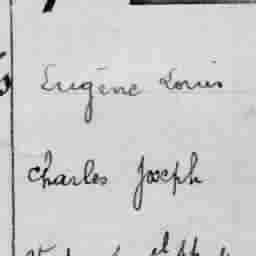 Eugène Louis
Charles Joseph